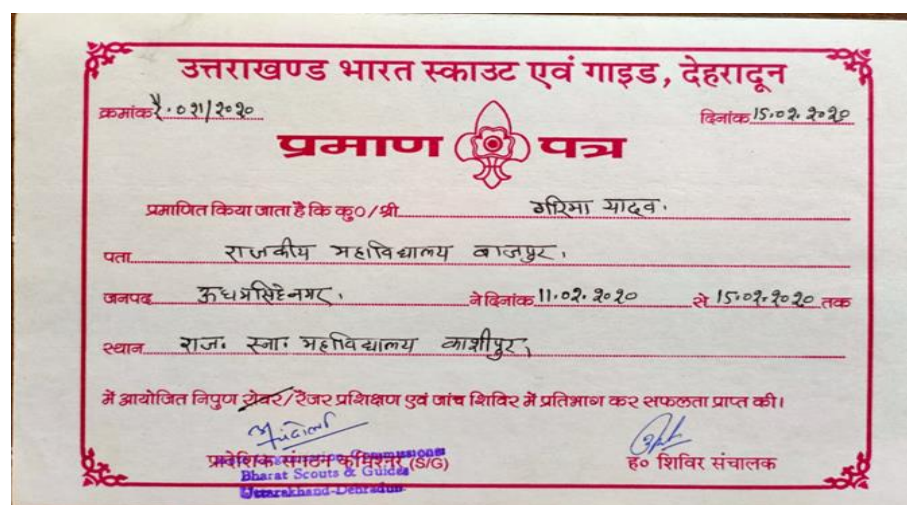 उत्तराखण्ड भारत स्काउट एवं गाइड, देहरादून
क्रमांक रै. ०२१/२०२० दिनांक 15.०२.२०२०
प्रमाण पत्र
प्रमाणित किया जाता है कि कु०/श्री गरिमा यादव.
पता राजकीय महाविद्यालय बाजपुर,
जनपद ऊधमसिंहनगर, ने दिनांक 11.०२.२०२० से 15.०२.२०२० तक
स्थान राज. स्ना. महाविद्यालय काशीपुर,
में आयोजित निपुण रोवर/रेंजर प्रशिक्षण एवं जांच शिविर में प्रतिभाग कर सफलता प्राप्त की।
प्रादेशिक संगठन कमिश्नर (S/G) ह० शिविर संचालक
Bharat Scouts & Guides
Uttarakhand-Dehradun